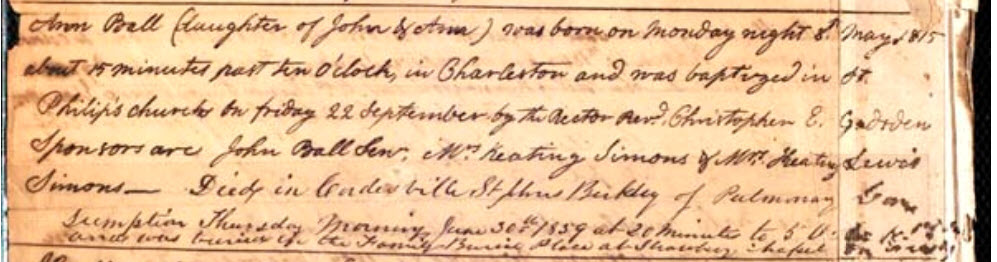 Ann Ball (daughter of John & Ann) was born on Monday night 8th May 1815
about 15 minutes past ten O'Clock, in Charleston and was baptized in St.
Philip's church on friday 22 September by the Rector Revd. Christopher E. Gadsden
Sponsors are John Ball Senr. Mrs Keating Simons & Mrs. Keating Lewis
Simons — Died in Cordesville St Johns Berkley of Pulmonary Con
sumption Thursday Morning, June 30th 1859 at 20 minutes to 5 O'
and was buried in the Family Burial Place at Strawberry Chapel